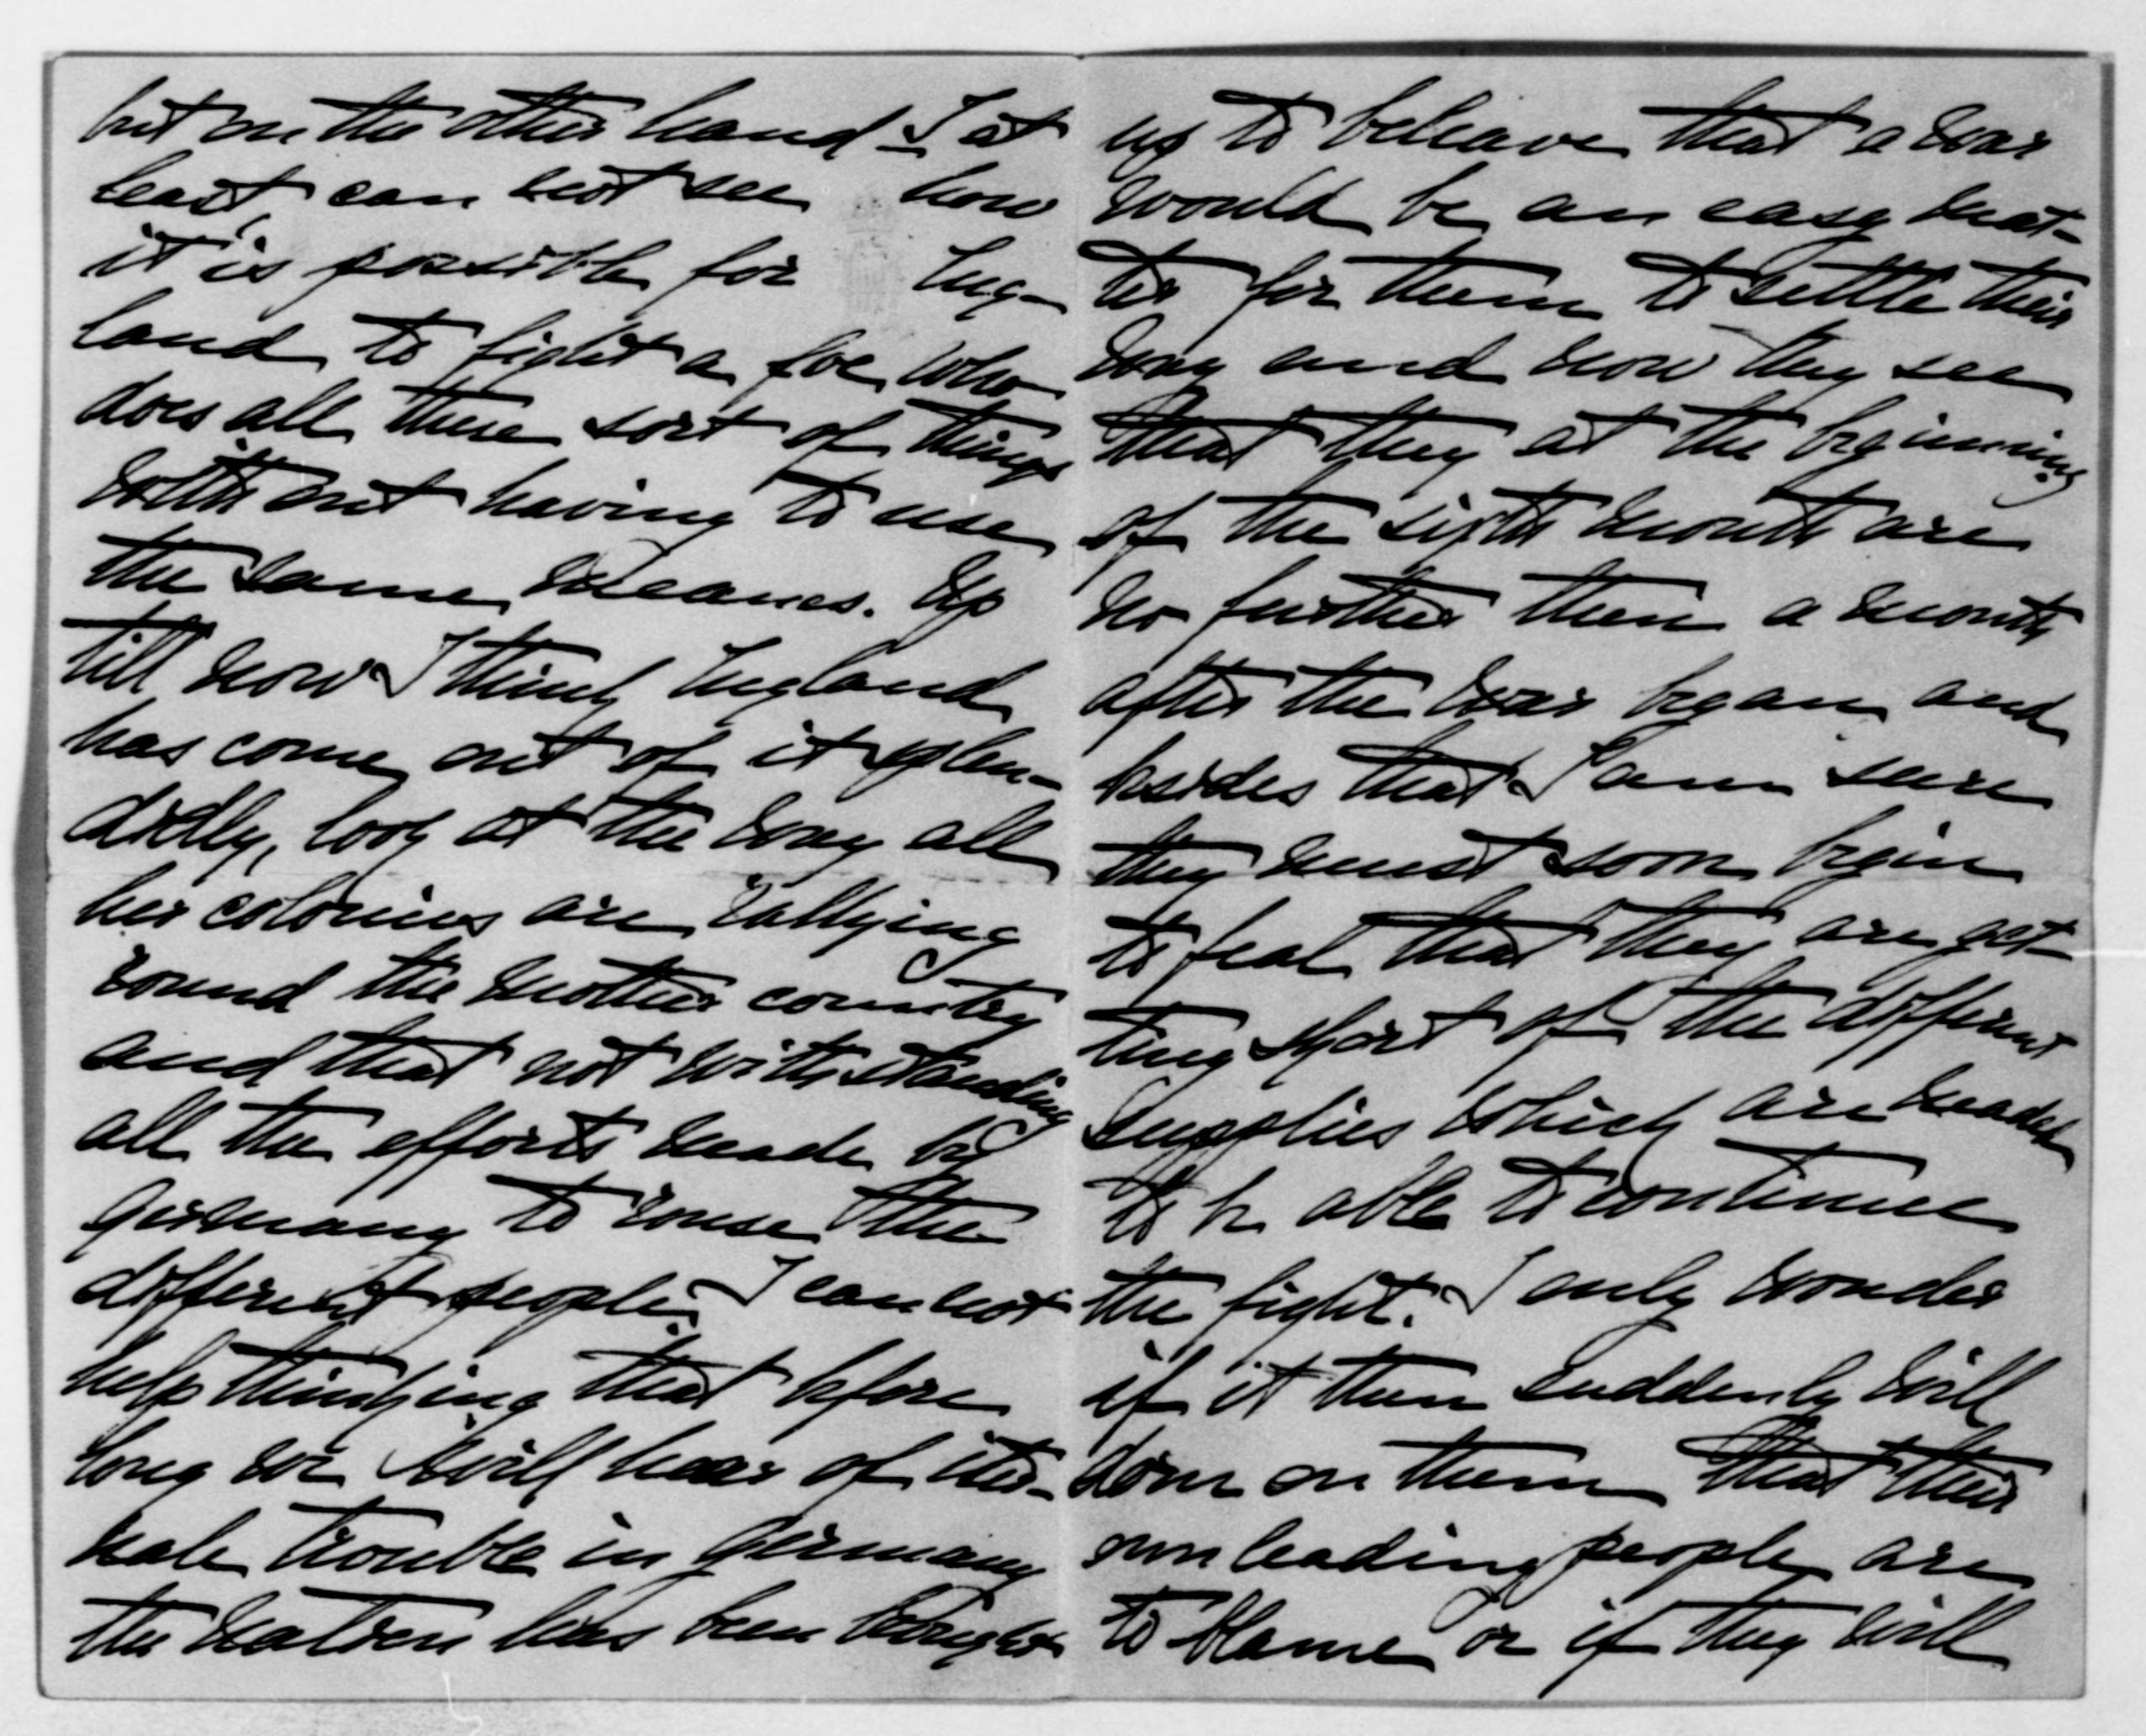 but on the other hand I at
least, can not see how
it is possible for Eng-
land to fight a foe who
does all these sort of things
without having to use
the same meanes. Up
till now I think England
has come out of it splen-
didly, look at the way all
her colonies are rallying
round the mother country
and that not withstanding
all the efforts made by
Germany to rouse the
different people. I cannot
help thinking that before
long we will hear of inter-
nale trouble in Germany
the nation has been brought
up to beleave that a war
would be an easy mat-
ter for them to settle their
way and now they see
that they at the beginning
of the sixth month are
no further then a month
after the war began and
besides that I am sure
they must soon begin
to feal that they are get-
ting short of the different
supplies which are neaded
to be able to continue
the fight. I only wonder
if it then suddenly will
dorn on them that their
own leading people are
to blame or if they will